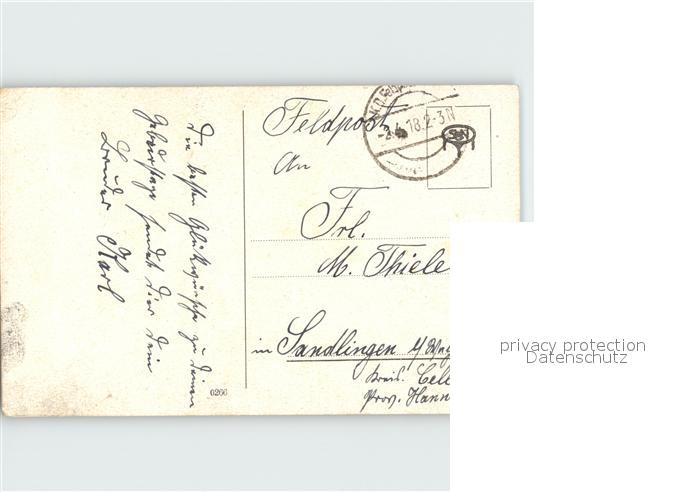 Die besten Glückwünsche zu deinem
Geburtstage sendet dir dein
Bruder Karl
0266
Feldpost
-2.4.18.2-3N
An
Frl.
M. Thiele
in Sandlingen
Kreis. Cell
Prov. Hann
privacy protection
Datenschutz